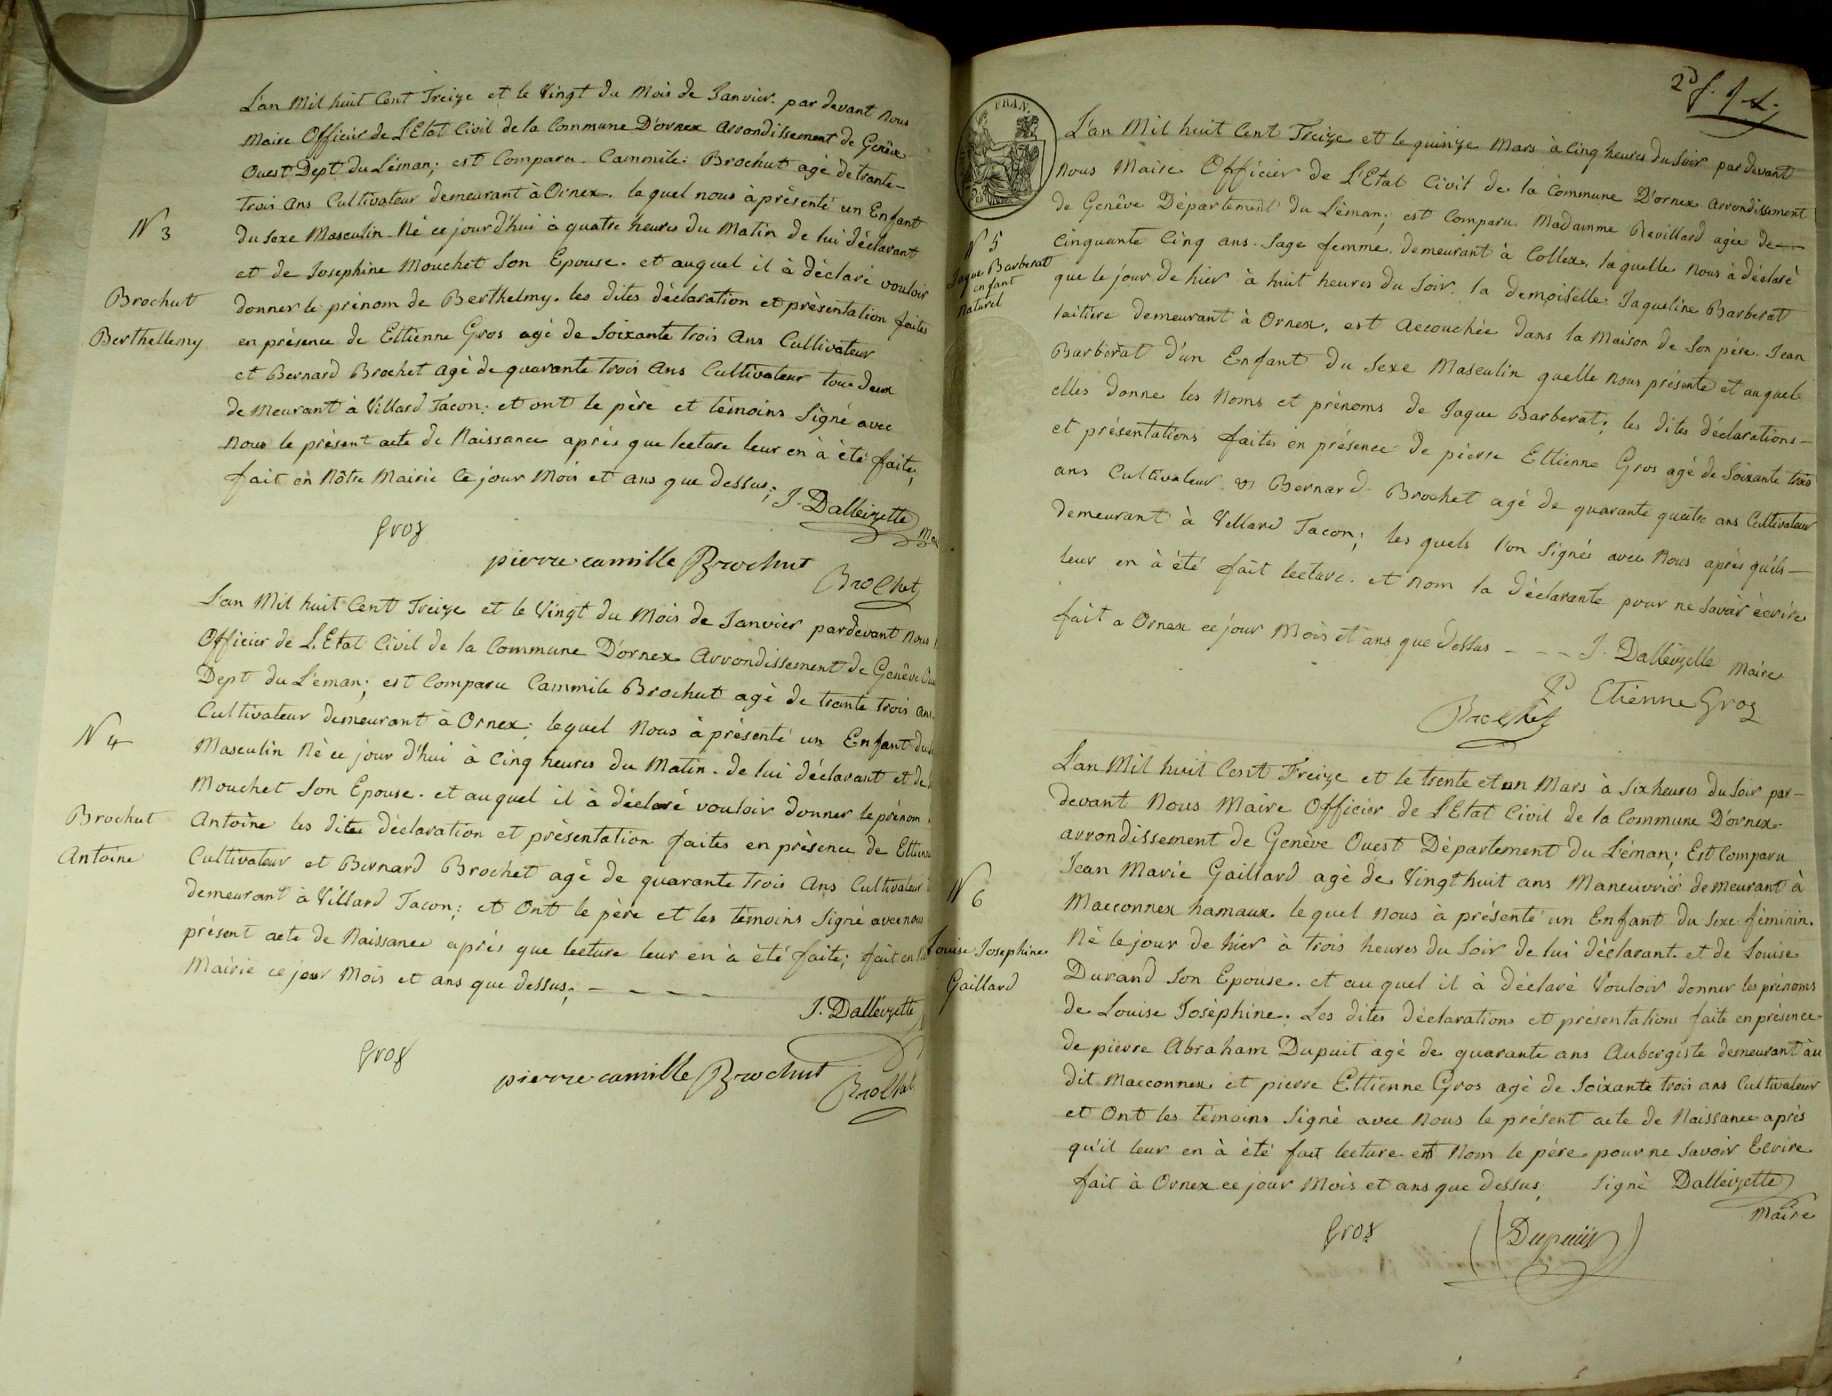 L'an Mil huit Cent Treize et le Vingt du Mois de Janvier. par devant Nous
Maire Officier de L'Etat Civil de la Commune D'ornex Arrondissement de Genêve
Ouest Dept du Léman; est Comparu. Cammile. Brochut agé de trante-
trois ans Cultivateur demeurant à Ornex. lequel nous à présenté un Enfant
N 3
du sexe Masculin Né ce jourd'hui à quatre heures du Matin de lui déclarant
et de Josephine Mouchet Son Epouse. et auquel il à déclaré vouloir
Brochut
donner le prénom de Berthelmy. les dites déclaration et présentation faites
Berthellemy
en présence de Ettienne Gros agé de Soixante trois Ans Cultivateur
et Bernard Brochet agé de quarante trois Ans Cultivateur tous deux
demeurant à Villard Tacon; et ont le père et témoins Signé avec
nous le présent acte de Naissance après que lecture leur en à été faite;
fait en Nôtre Mairie Ce jour Mois et ans que dessus; J. Dalleizette
Gros
pierre camille Brochut
Brochet
L'an Mil huit Cent Treize et le Vingt du Mois de Janvier pardevant Nous
Officier de L'Etat Civil de la Commune D'ornex Arrondissement de Genêve
Dept du Léman; est Comparu Cammile Brochut agé de trante trois ans
N 4
Cultivateur demeurant à Ornex. lequel Nous à présenté un Enfant du
Masculin Né ce jour d'hui à Cinq heures du Matin. de lui déclarant et de
Mouchet Son Epouse. et auquel il à déclaré vouloir donner le prénom
Brochut
Antoine les dites déclaration et présentation faites en présence de
Antoine
Cultivateur et Bernard Brochet agé de quarante trois Ans Cultivateur
demeurant à Villard Tacon; et Ont le père et les témoins Signé avec nous
présent acte de Naissance après que lecture leur en à été faite; fait en
Mairie ce jour Mois et ans que dessus;
J. Dalleizette
Gros
pierre camille Brochut
Brochet
FRAN.
L'an Mil huit Cent Treize et le quinze Mars à Cinq heures du Soir par devant
nous Maire Officier de L'Etat Civil de la Commune D'ornex Arrondissement
de Genêve Département du Léman; est Comparu Madamme Revillard agée de
N 5
Cinquante Cinq ans. Sage femme. demeurant à Collex. laquelle Nous à déclaré
Jaque Barberat
enfant
Naturel
que le jour de hier à huit heures du Soir. la demoiselle Jaqueline Barberat
laitière demeurant à Ornex, est Accouchée dans la Maison de Son père. Jean
Barberat d'un Enfant du Sexe Masculin quelle Nous présente et auquel
elles donne les Noms et prénoms de Jaque Barberat; les dites déclarations
et présentations faites en présence de pierre Ettienne Gros agé de Soixante trois
ans Cultivateur et Bernard Brochet agé de quarante quatre ans Cultivateur
demeurant à Vellard Tacon; les quels l'on Signés avec Nous après qu'ils
leur en à été fait lecture. et Nom la déclarante pour ne Savoir écrire
fait a Ornex ce jour Mois et ans que dessus J. Dalleizette Maire
Etienne Gros
Brochet
L'an Mil huit Cent Treize et le trente et un Mars à Six heures du Soir par-
devant Nous Maire Officier de L'Etat Civil de la Commune D'ornex
arrondissement de Genêve Ouest Département du Léman; Est Comparu
Jean Marie Gaillard agé de Vingt huit ans Maneuvrié demeurant à
N 6
Macconnex hamaux. lequel Nous à présenté un Enfant du Sexe féminin.
Né le jour de hier à trois heures du Soir de lui déclarant. et de Louise
Louise Josephine
Gaillard
Durand Son Epouse. et auquel il à déclaré Vouloir donner les prénoms
de Louise Joséphine. Les dites déclarations et présentations faite en présence
de pierre Abraham Dupuit agé de quarante ans Aubergiste demeurant au
dit Macconnex et pierre Ettienne Gros agé de Soixante trois ans Cultivateur
et Ont les témoins Signé avec Nous le présent acte de Naissance après
qu'il leur en à été fait lecture et Nom le père pour ne Savoir Ecrire
fait à Ornex ce jour Mois et ans que dessus; Signé Dalleizette
Maire
Gros
Dupuis